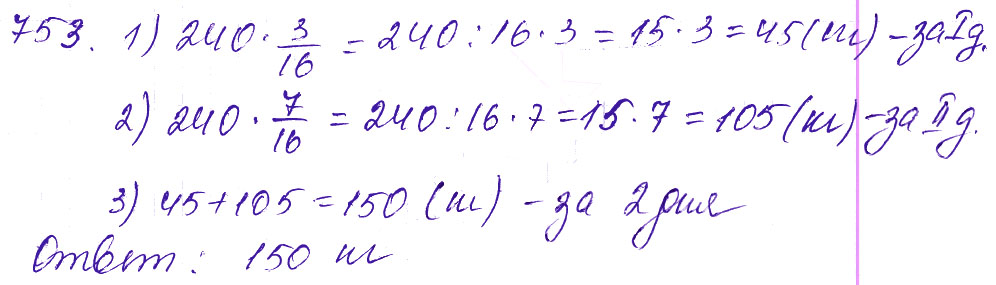 753. 1) 240 · 3/16 = 240 : 16 · 3 = 15 · 3 = 45 (кг) - за I д.
2) 240 · 7/16 = 240 : 16 · 7 = 15 · 7 = 105 (кг) - за II д.
3) 45 + 105 = 150 (кг) - за 2 дня
Ответ: 150 кг